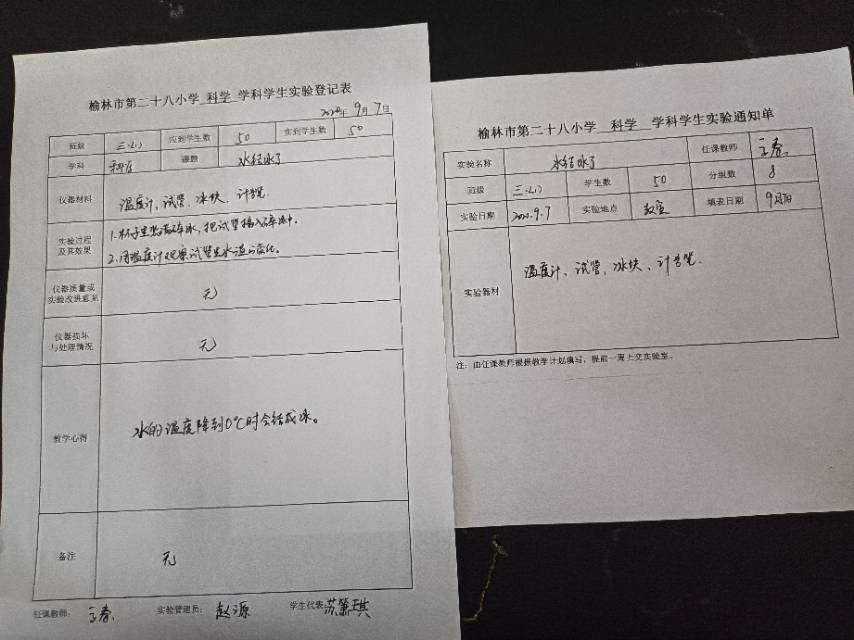 榆林市第二十八小学 科学 学科学生实验登记表
9月7日
班级 三.(1) 应到学生数 50 实到学生数 50
学科 科学 课题 水结冰了
仪器材料 温度计、试管、冰块、计时器
实验过程及其效果
1.杯子里装满碎冰,把试管插入碎冰中。
2.用温度计观察试管里水温的变化。
仪器质量或实验改进意见 无
仪器损坏与处理情况 无
教学心得 水的温度降到0℃时会结成冰。
备注 无
任课教师: 实验管理员: 赵源 学生代表:
榆林市第二十八小学 科学 学科学生实验通知单
实验名称 水结冰了 任课教师
班级 三.(1) 学生数 50 分组数 8
实验日期 9.7 实验地点 教室 填表日期 9月7日
实验器材 温度计、试管、冰块、计
注:由任课教师根据教学计划填写,提前一周上交实验室。